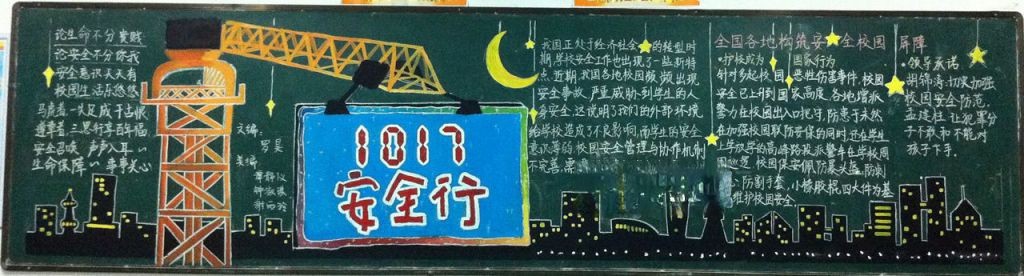 论生命不分贵贱
论安全不分你我
安全意识天天有
校园生活乐悠悠
安全召唤 声声入耳
生命保障 事事关心
文编:
美编:
1017
安全行
我国正处于经济社会的转型时
期,学校安全工作也出现了一些新特
点,近期,我国各地校园频频出现
安全事故,严重威胁到学生的人
身安全.这说明了我们的外部环境
给学校造成了不良影响,而学生的安全
意识等的校园安全管理与协作机制
不完善,需
全国各地构筑安全校园
屏障
·护校成为 国家行为
针对多起校园恶性伤害事件,校园
安全已上升到国家高度,各地增派
警力在校园出入口把守,防患于未然
在加强校园联防等保的同时,还在学生
上学放学的高峰路段派警车在学校周
围巡逻,校园保安佩防暴头盔、防刺
、防割手套、小橡胶棍四大件为基
维护校园安全.
·领导承诺
胡锦涛:切实加强
校园安全防范
孟建柱:让犯罪分
子不敢和不能对
孩子下手.